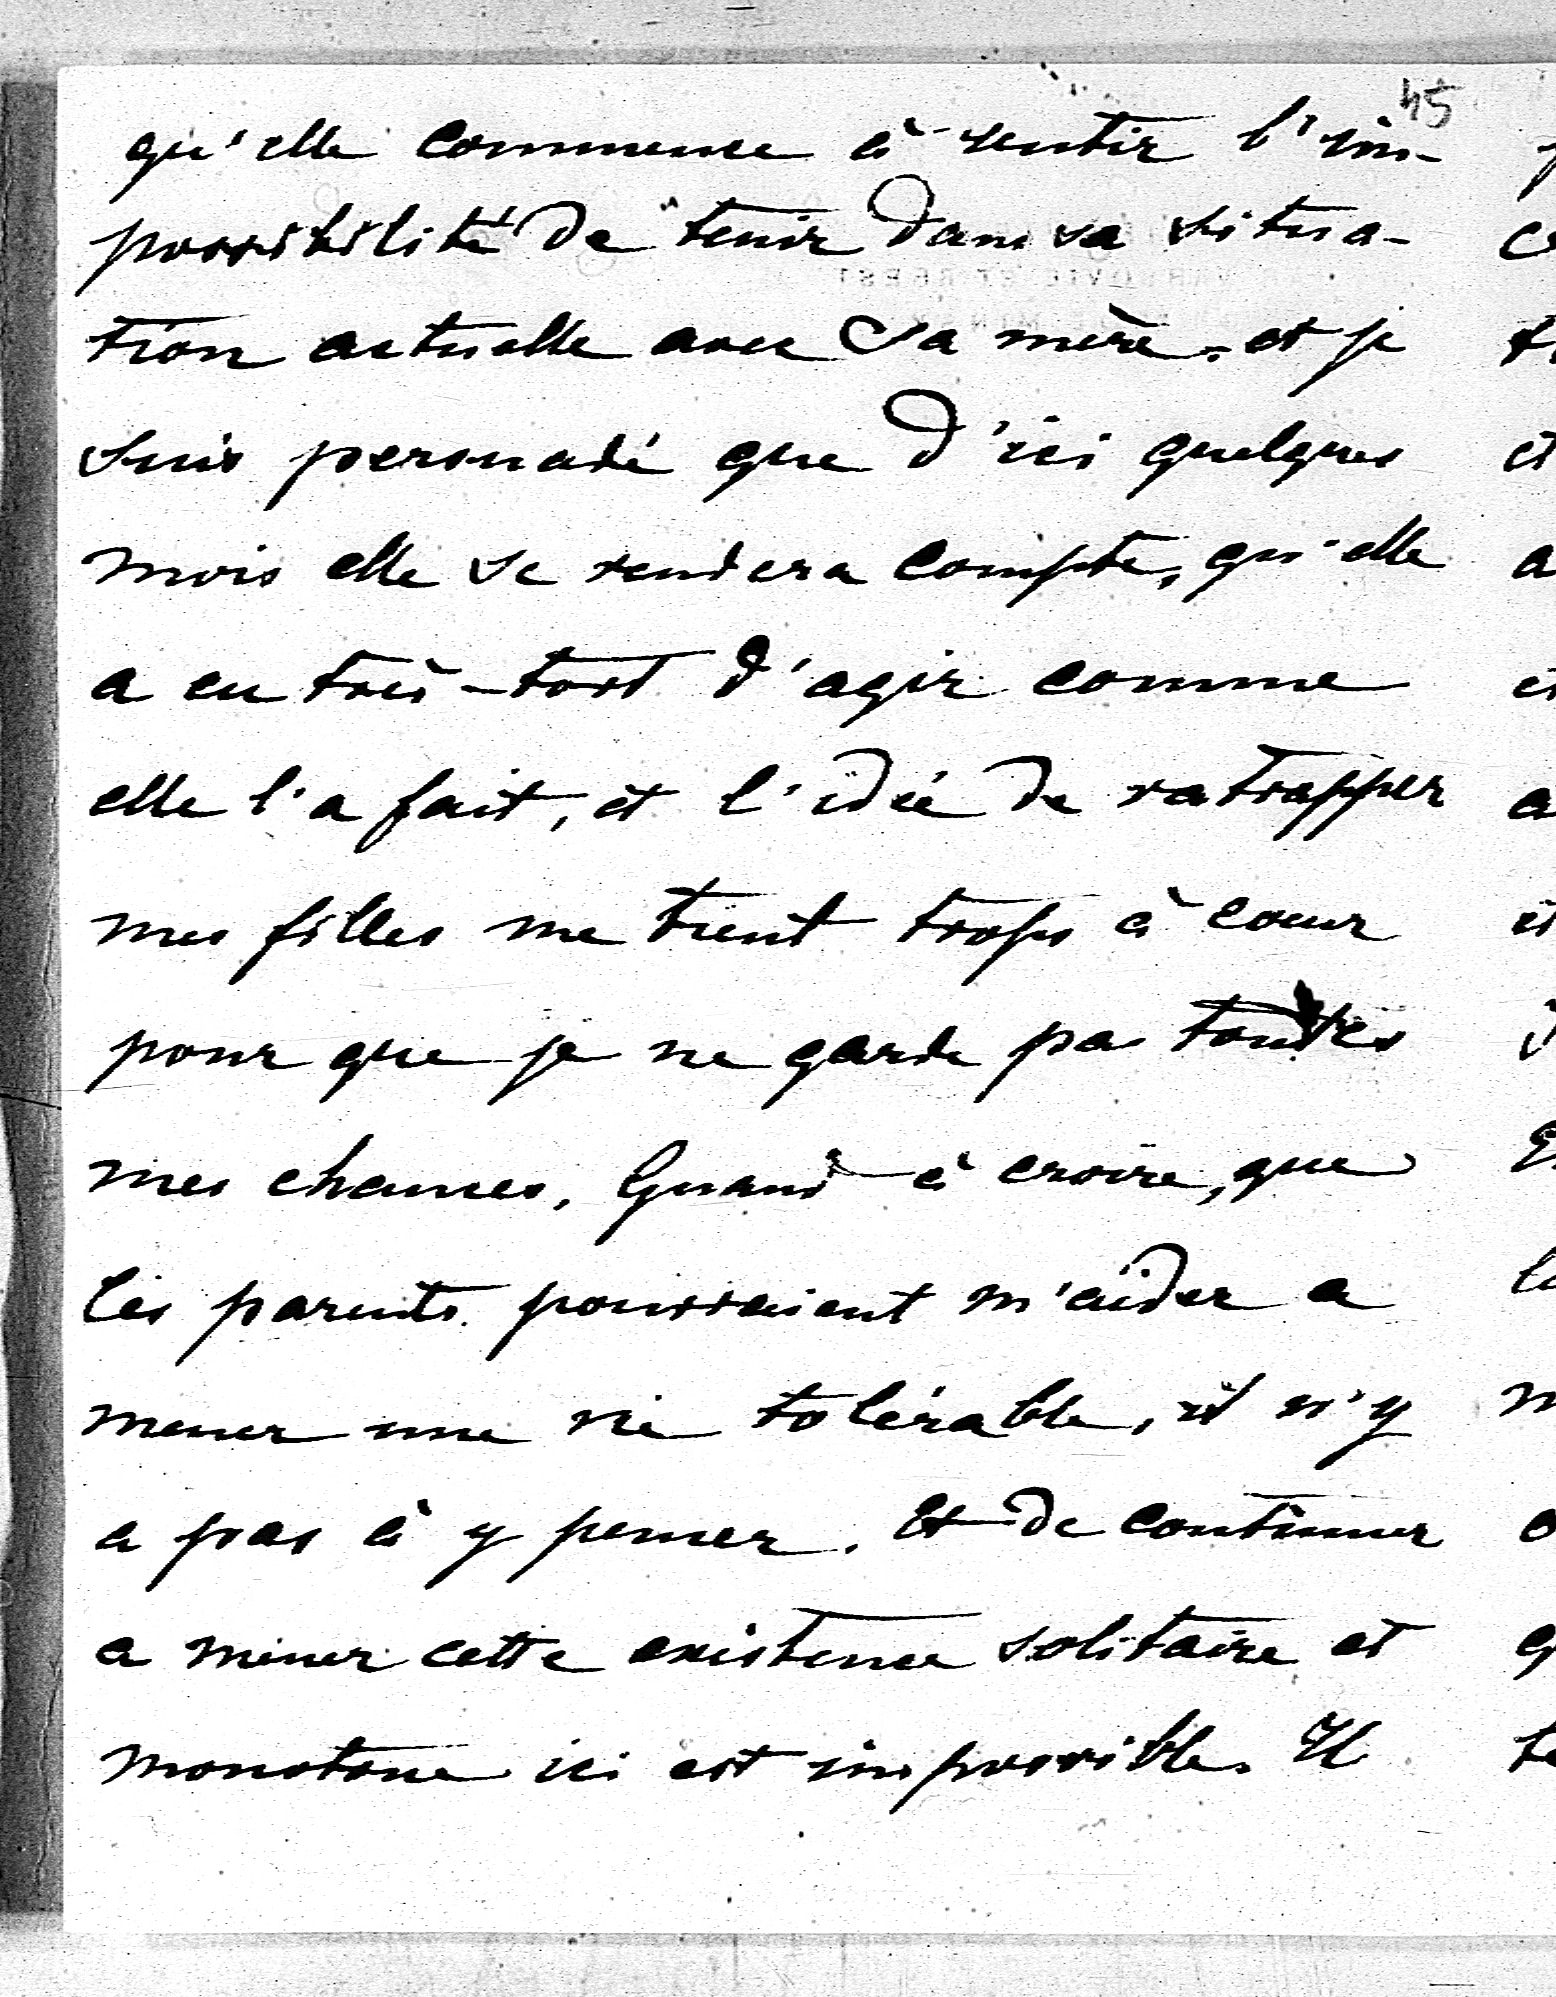 45
qu'elle commence à sentir l'im-
possibilité de tenir dans sa situa-
tion actuelle avec sa mère, et je
suis persuadé que d'ici quelques
mois elle se rendera compte, qu'elle
a eu très-tort d'agir comme
elle l'a fait, et l'idée de ratrapper
mes filles me tient trops à coeur
pour que je ne garde pas toutes
mes chances. Quand à croire, que
les parents pourraient m'aider a
mener une vie tolérable, il n'y
a pas à y penser. Et de continuer
a mener cette existence solitaire et
monotone ici est impossible. Il